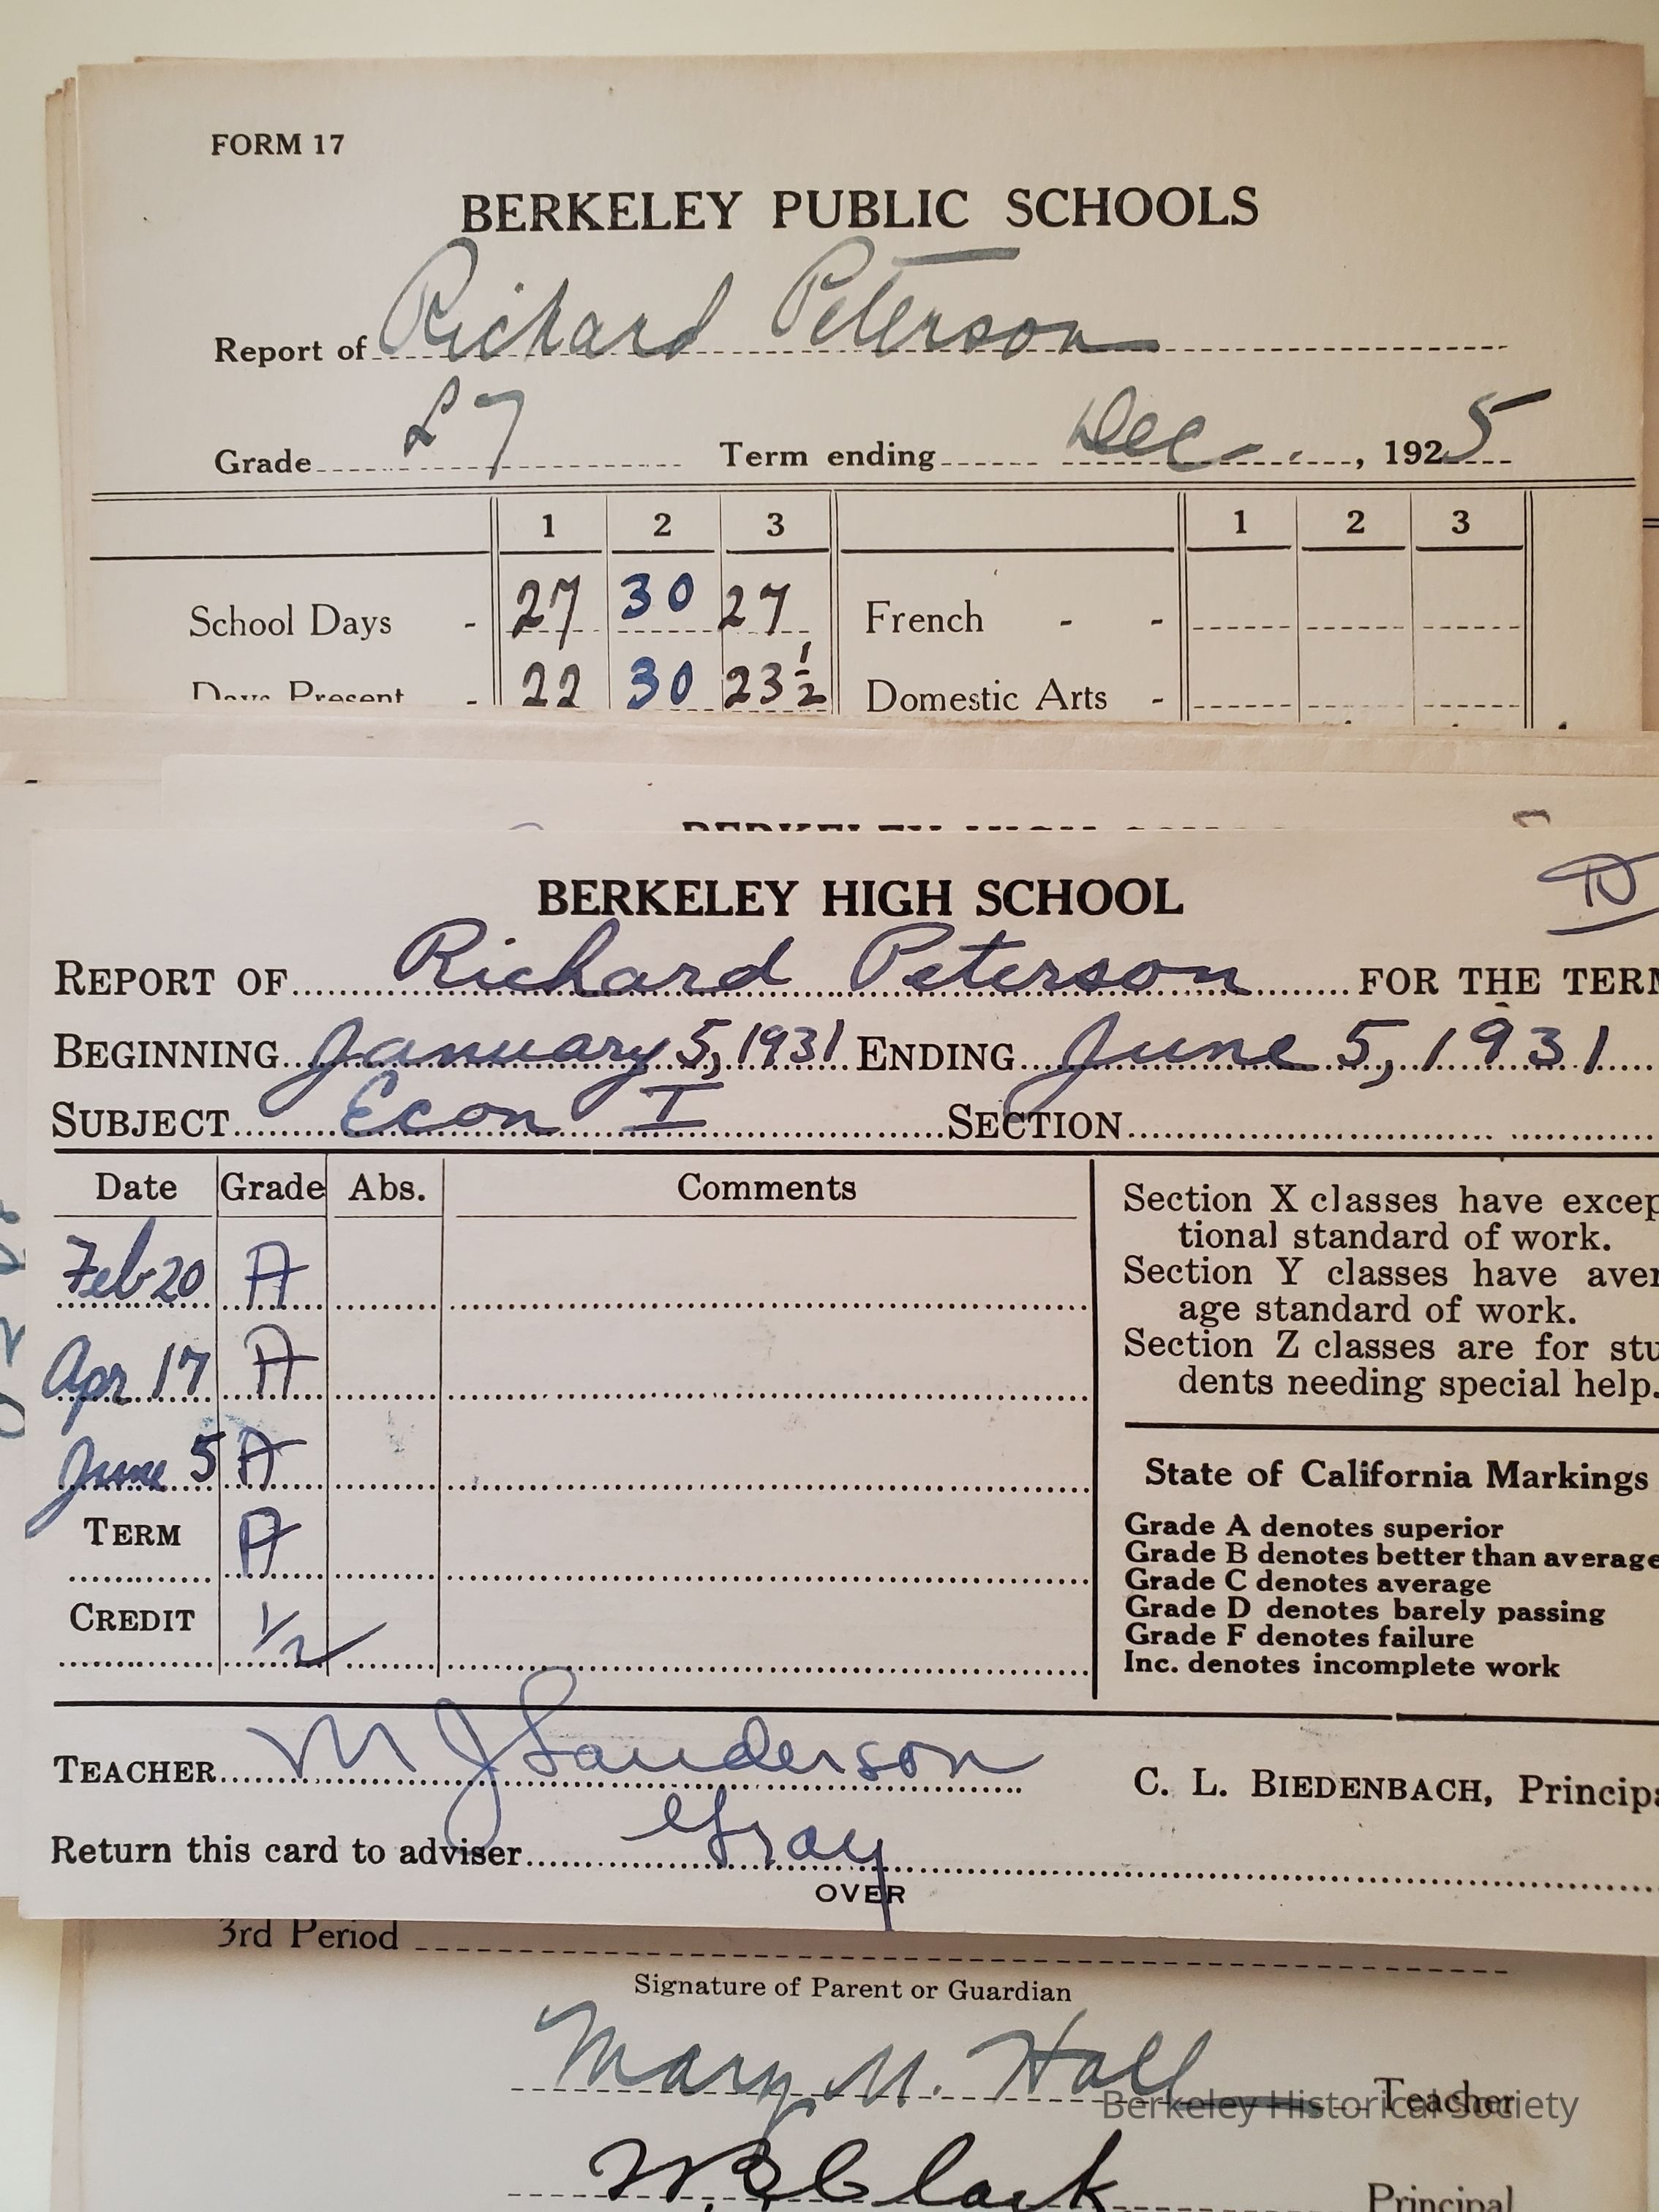 FORM 17
BERKELEY PUBLIC SCHOOLS
Report of Richard Peterson
Grade L7 Term ending Dec. , 1925
1 2 3 1 2 3
School Days - 27 30 27 French - -
Days Present - 22 30 23 1/2 Domestic Arts -
BERKELEY HIGH SCHOOL
REPORT OF Richard Peterson FOR THE TERM
BEGINNING January 5, 1931 ENDING June 5, 1931
SUBJECT Econ I SECTION
Date Grade Abs. Comments
Feb 20 A
Apr 17 A
June 5 A
TERM A
CREDIT 1/2
Section X classes have excep
tional standard of work.
Section Y classes have aver
age standard of work.
Section Z classes are for stu
dents needing special help.
State of California Markings
Grade A denotes superior
Grade B denotes better than average
Grade C denotes average
Grade D denotes barely passing
Grade F denotes failure
Inc. denotes incomplete work
TEACHER M J Sanderson C. L. BIEDENBACH, Principa
Return this card to adviser Gray
OVER
3rd Period
Signature of Parent or Guardian
Mary N. Hall Teacher
Berkeley Historical Society
W.B. Clark Principal